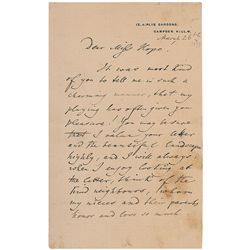 15, AIRLIE GARDENS,
CAMPDEN HILL, W.
March 26th
Dear Miss Hope.
It was most kind
of you to tell me in such a
charming manner, that my
playing has often given you
pleasure! You may be sure
that I value your letter
and the beautiful landscape
highly, and I will always
when I enjoy looking at
the latter, think of the
kind neighbours, whom
my nieces and their parents
honor and love so much